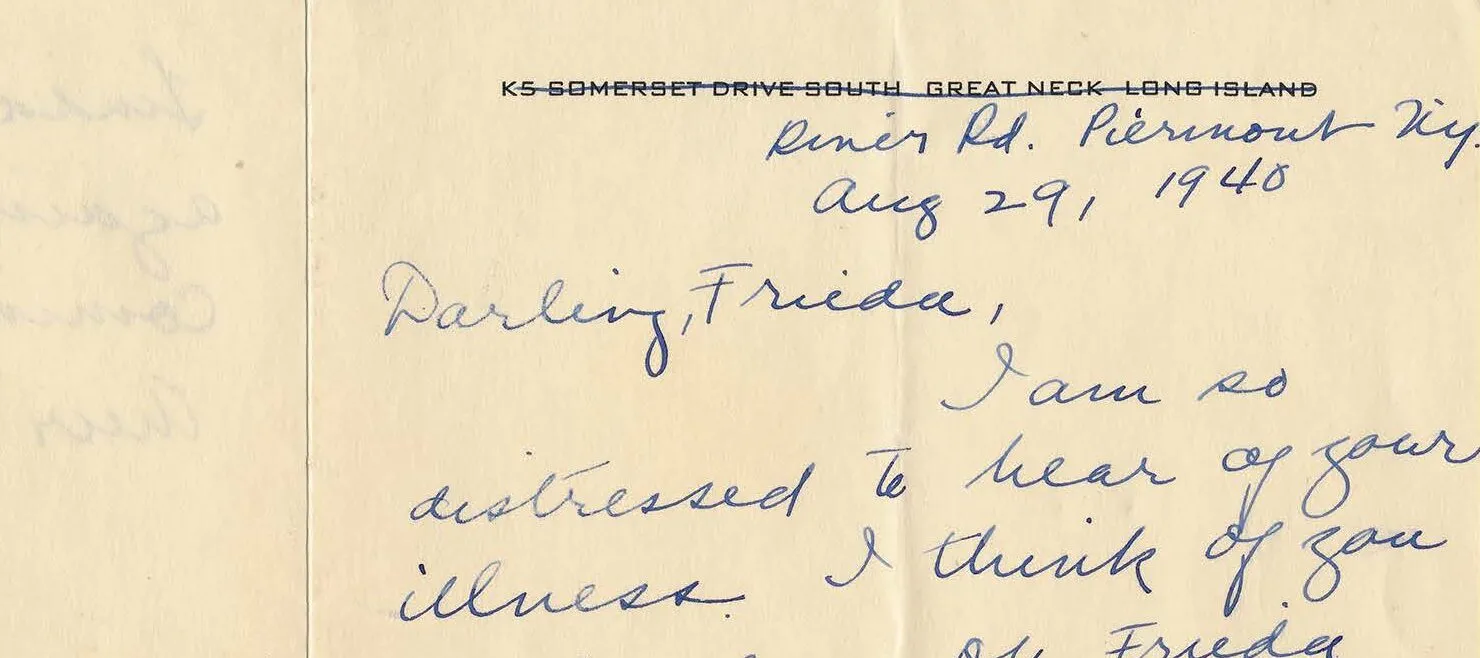 K5 SOMERSET DRIVE SOUTH GREAT NECK LONG ISLAND
River Rd. Piermont N.Y.
Aug 29, 1940
Darling, Frieda,
I am so
distressed to hear of your
illness. I think of you
Frieda